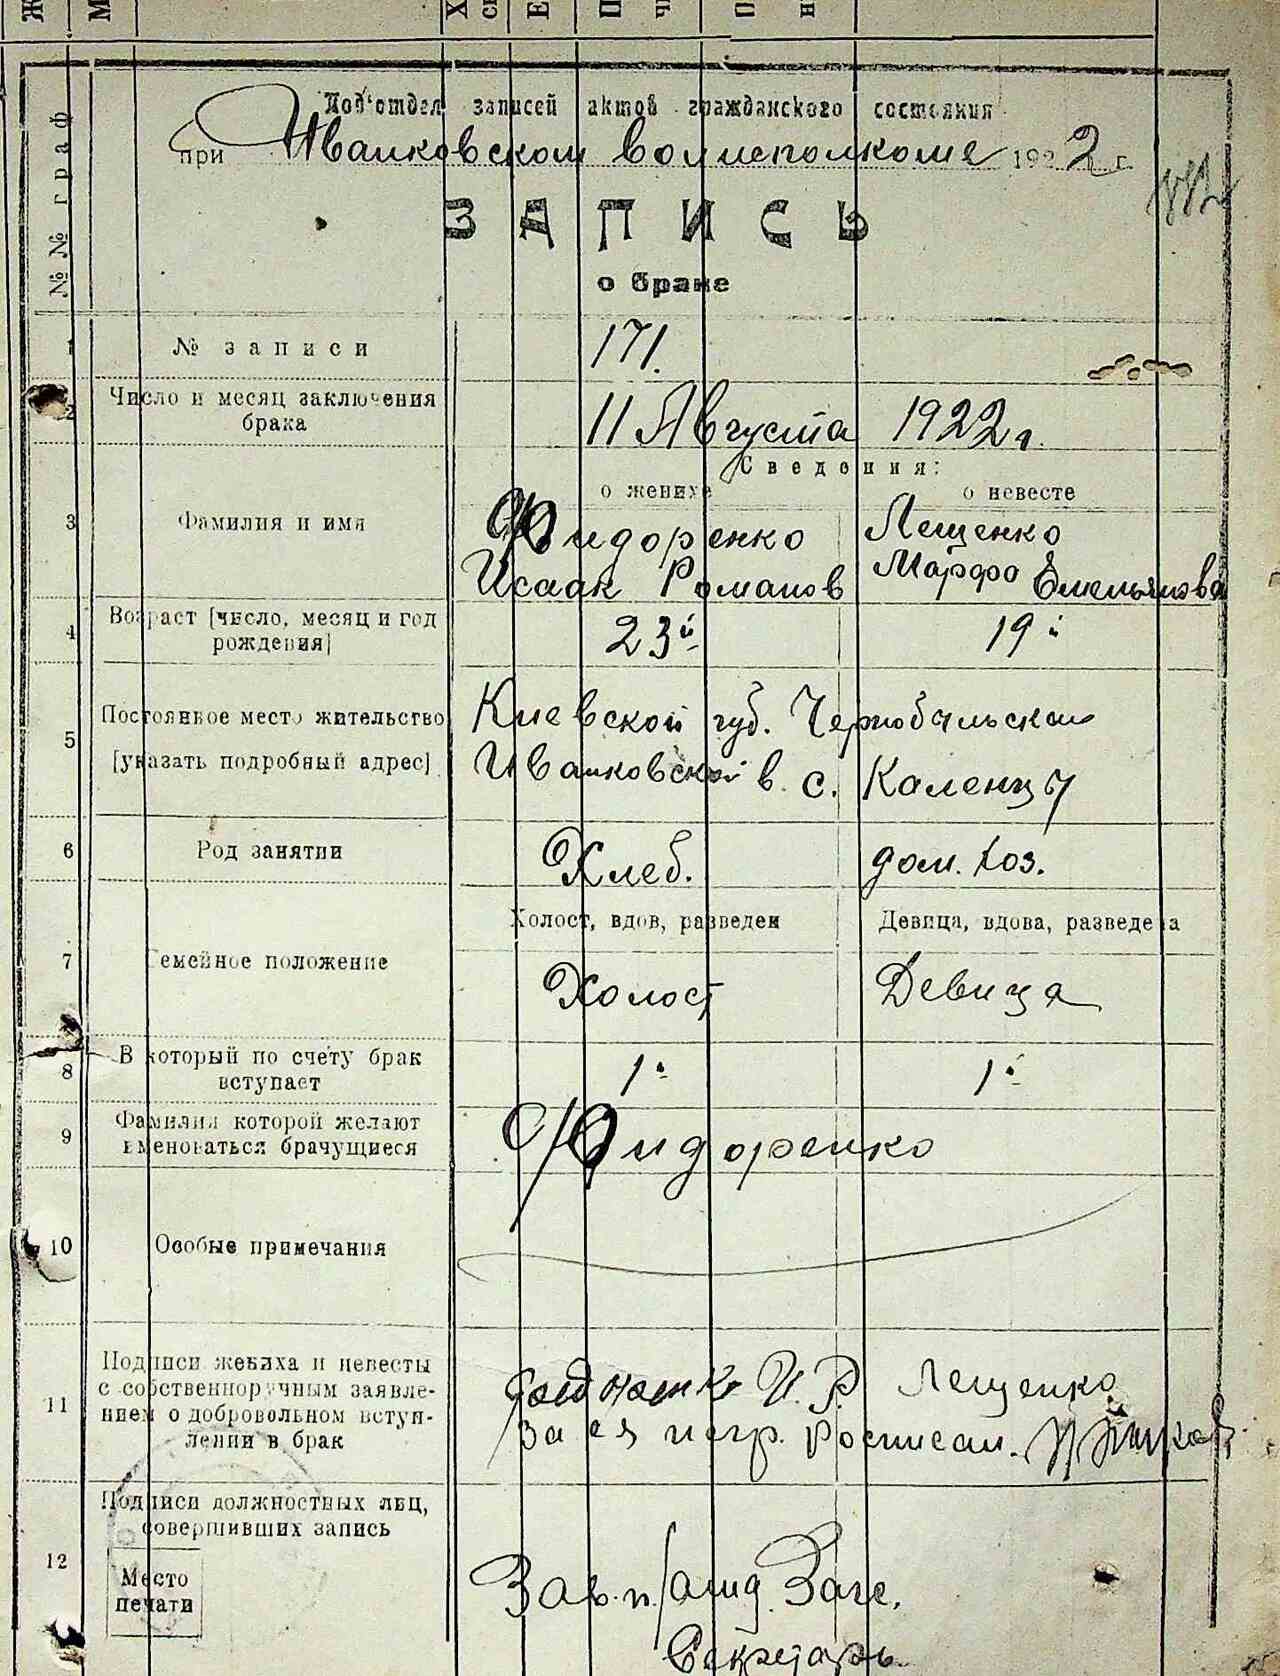 Под'отдел записей актов гражданского состояния
при Иванковском волисполкоме 1922 г.
ЗАПИСЬ
о браке
№№ граф
1 № записи 171.
2 Число и месяц заключения брака 11 Августа 1922 г.
Сведения:
о женихе о невесте
3 Фамилия и имя Фидоренко Лещенко
Исаак Романов Марфа Емельянова
4 Возраст [число, месяц и год рождения] 23й 19й
5 Постоянное место жительство Киевской губ. Чернобыльской
[указать подробный адрес] Иванковской в. с. Каленцы
6 Род занятии Хлеб. дом. хоз.
Холост, вдов, разведен Девица, вдова, разведена
7 Семейное положение Холост Девица
8 В который по счету брак вступает 1й 1й
9 Фамилия которой желают именоваться брачущиеся Фидоренко
10 Особые примечания
11 Подписи жениха и невесты
с собственноручным заявле-
нием о добровольном вступ-
лении в брак
И. Р. Лещенко
За ея негр. Росписал.
12 Подписи должностных лиц,
совершивших запись
Место
печати
Зав. п/отд. Загс.
Секретарь